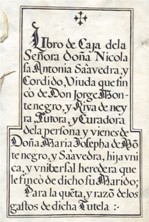 Libro de Caja dela
Señora doña Nicola
sa Antonia Saavedra, y
Cordido, Viuda que fin
có de Don Jorge Mon
te negro, y Riva de ney
ra, Tutora, y Curadora
dela persona y vienes de
Doña Maria Josepha de Mõ
te negro, y Saavedra, hija vni
ca, y vniversal heredera que
le fincó de dicho su Marido;
Para la quẽta, y razõ delos
gastos de dicha Tutela :-